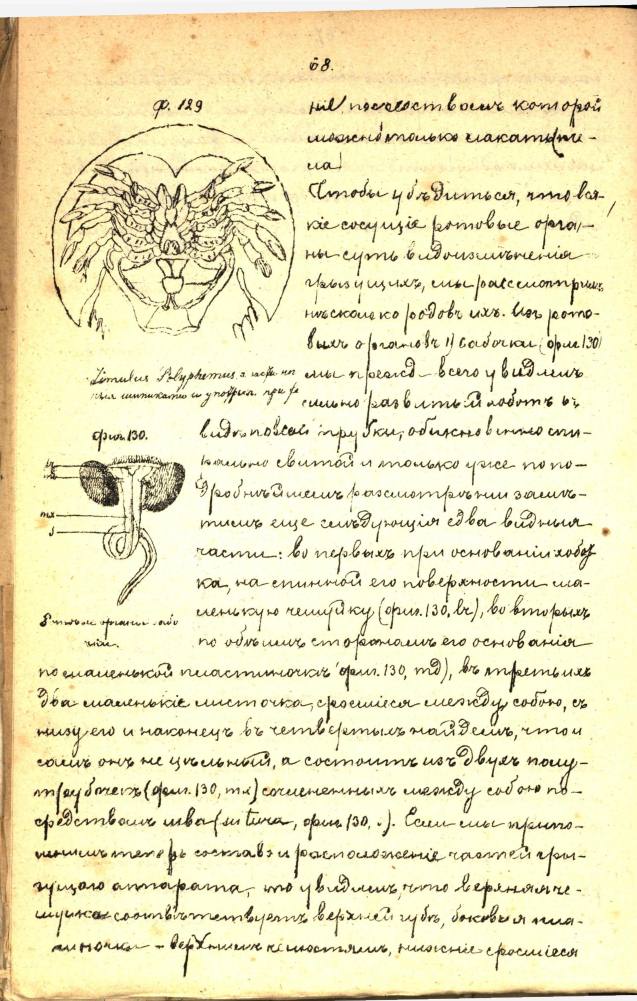 68.
ф. 129
ніе, посредствомъ которой
можно только лакать (пче-
ла).
Чтобы убѣдиться, что вся-
кіе сосущіе ротовые орга-
ны суть видоизмѣненія
грызущихъ, мы разсмотримъ
нѣсколько родовъ ихъ. Изъ рото-
выхъ органовъ 1) бабочки (фиг. 130)
мы прежде всего увидимъ
сильно развитый хоботъ въ
Limulus Polyphemus
фиг. 130.
видѣ полой трубки, обыкновенно спи-
рально свитой и только уже по по-
дробнѣйшемъ разсмотрѣніи замѣ-
тимъ еще слѣдующія едва видныя
части: во первыхъ при основаніи хобот-
ка, на спинной его поверхности ма-
ленькую чешуйку (фиг. 130, lr), во вторыхъ
по обѣимъ сторонамъ его основанія
Ротовые органы бабо
чки.
по маленькой пластиночкѣ (фиг. 130, md), въ третьихъ
два маленькіе листочка, сросшіеся между собою, съ
низу его и наконецъ въ четвертыхъ найдемъ, что и
самъ онъ не цѣльный, а состоитъ изъ двухъ полу-
трубочекъ (фиг. 130, mx) сочлененныхъ между собою по-
средствомъ шва (sutura, фиг. 130, .). Если мы припо-
мнимъ теперь составъ и расположеніе частей гры-
зущаго аппарата, то увидимъ, что верхняя че-
шуйка соотвѣтствуетъ верхней губѣ, боковыя пла-
тиночки – верхнимъ челюстямъ, нижніе сросшіеся